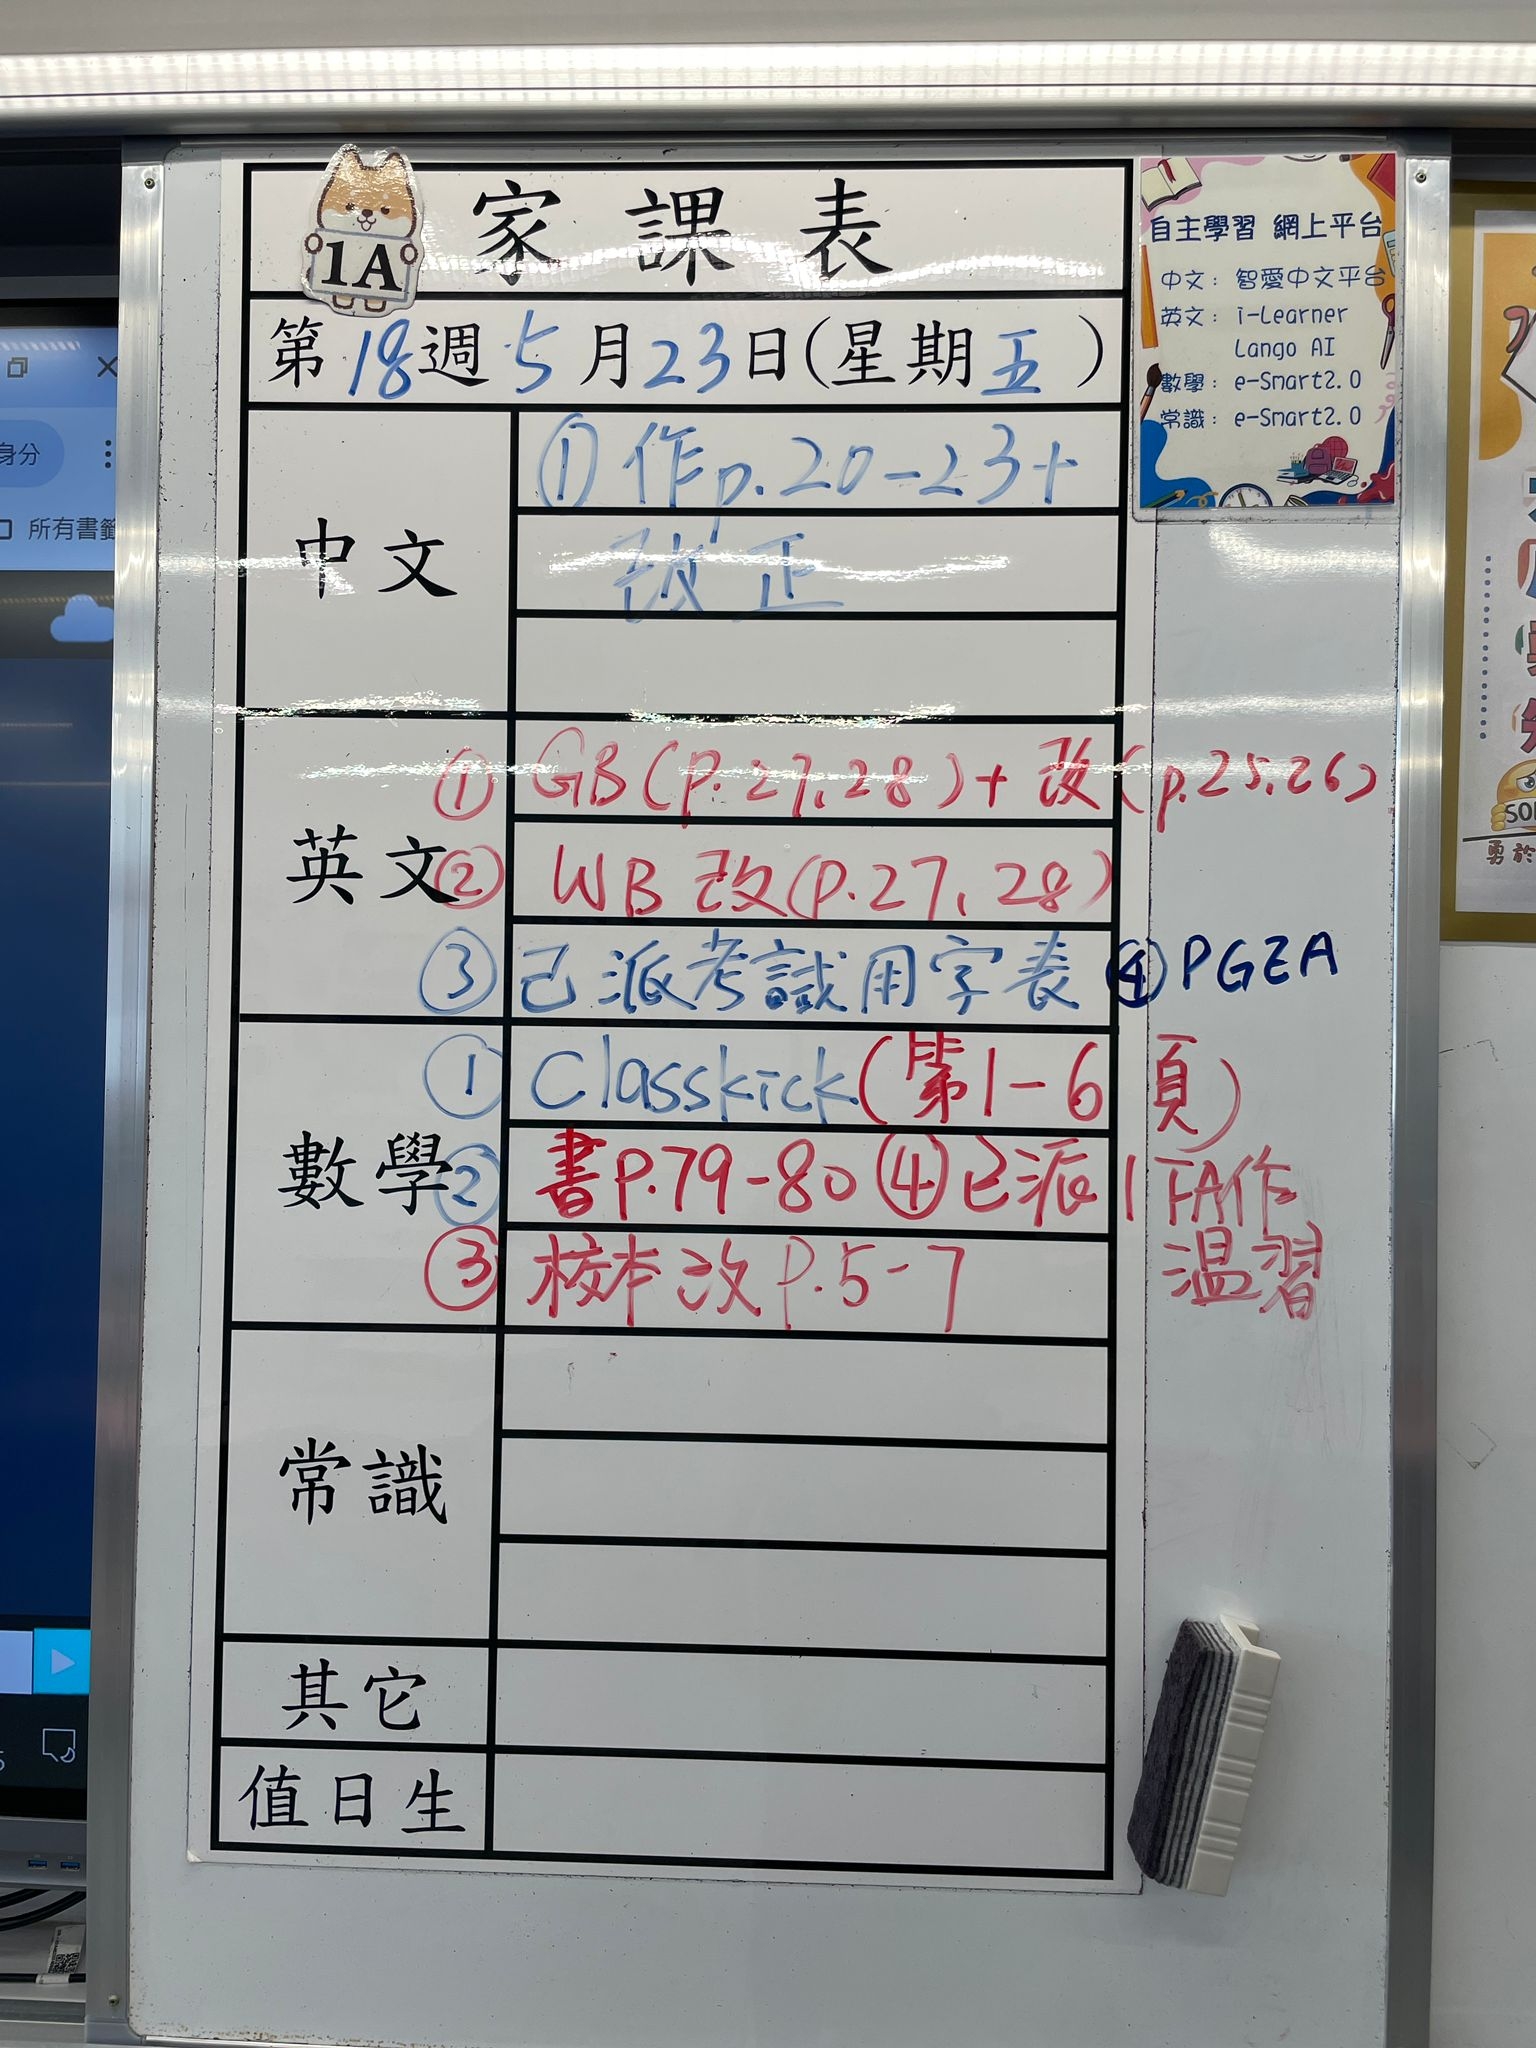 家課表
1A
第18週5月23日(星期五)
中文
①作p.20-23+
改正
英文
①GB(p.27,28)+改(p.25,26)
②WB改(p.27,28)
③已派考試用字表 ④PGEA
數學
①Classkick(第1-6頁)
②書P.79-80 ④已派1FA作
溫習
③校本改P.5-7
常識
其它
值日生
自主學習 網上平台
中文: 智愛中文平台
英文: i-Learner
Lango AI
數學: e-Smart2.0
常識: e-Smart2.0
身分
所有書籤
勇於